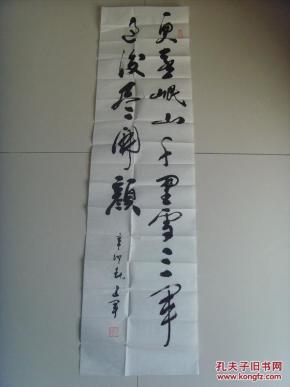 更喜岷山千里雪三军
过后尽开颜
辛卯秋 建军
孔夫子旧书网
www.kongfz.com